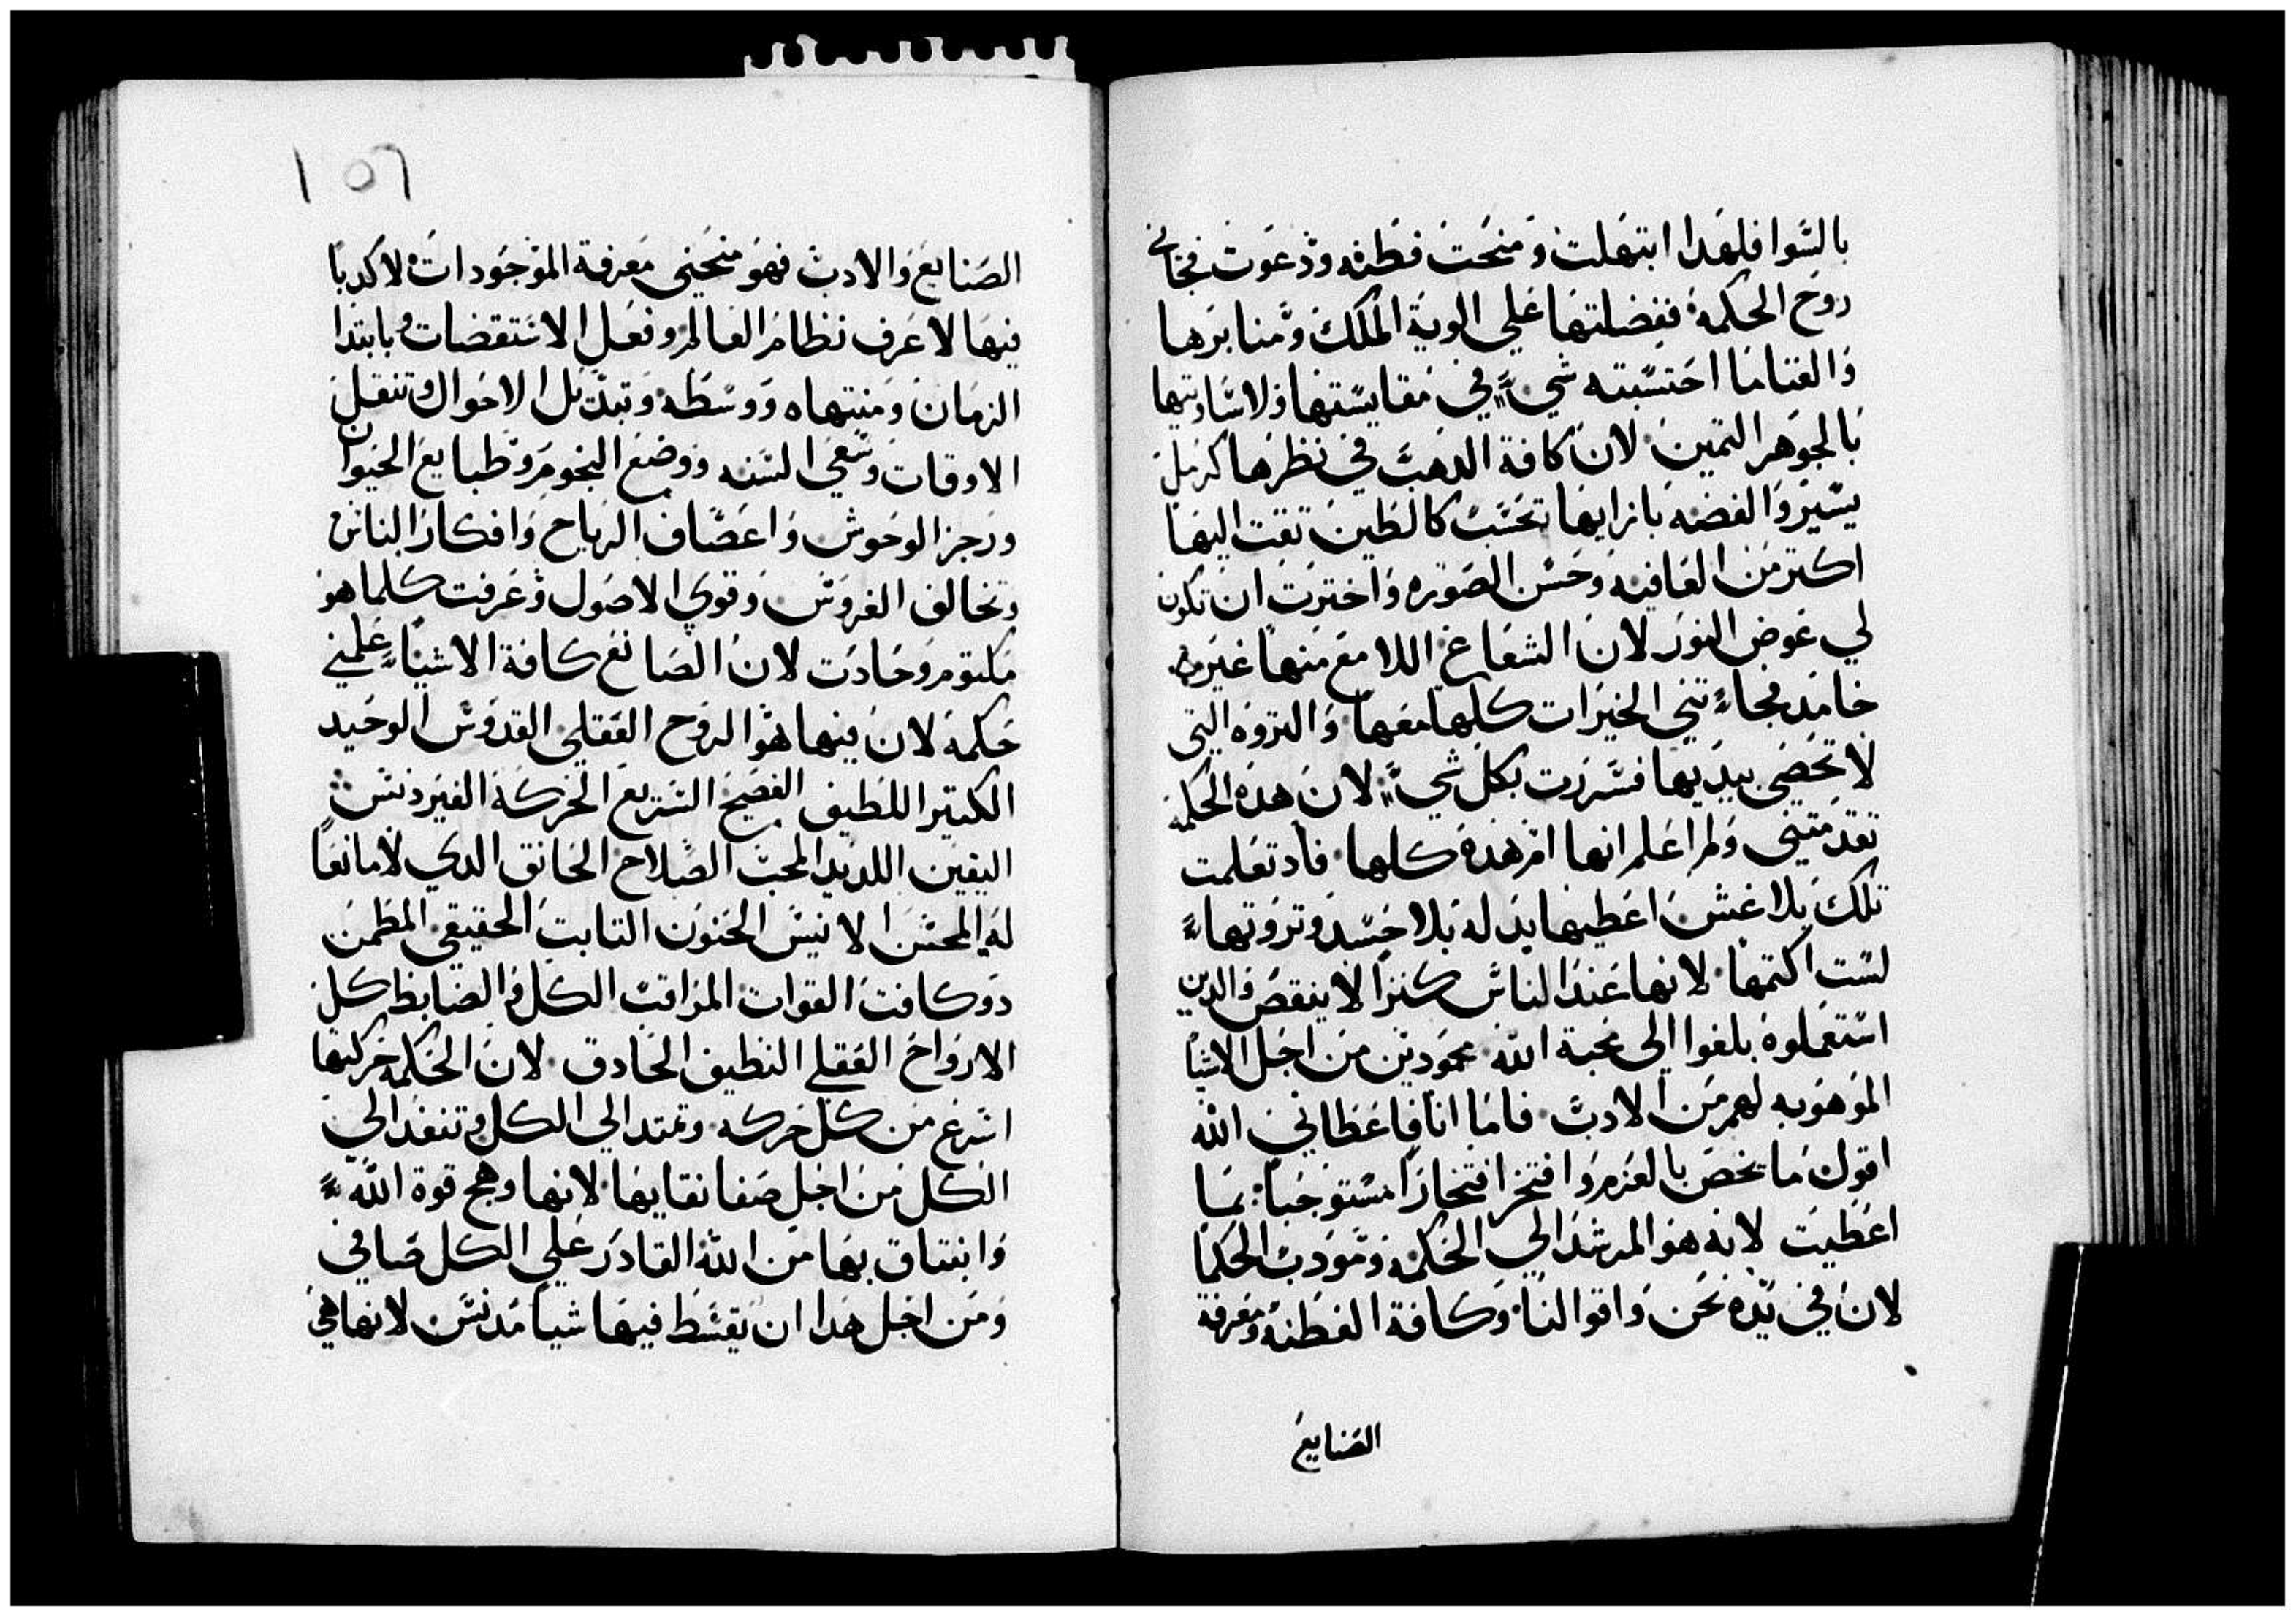 بالسوا فلهدا ابتهلت ومنحت فطنه ودعوت فجاني
روح الحكمه ففضلتها علي الوية الملك ومنابرها
والغنا ما احتسبته شيء في مقايستها ولا ساويتها
بالجوهر التمين لان كافة الدهب في نظرها كرمل
يسير والفضه بازايها تحسب كالطين تقت اليها
اكتر من العافيه وحسن الصوره واخترت ان تكون
لي عوض النور لان الشعاع اللامع منها غير
خامد فجاءتني الخيرات كلها معها والتروه التي
لا تحصي بيديها فسررت بكل شيء لان هده الحكمه
تقدمتني ولم اعلم انها ام هده كلها فاد تعلمت
تلك بلا غش اعطيها بدله بلا حسد وتروتها
لست اكتمها لانها عند الناس كنزا لا ينقص والدين
استعملوه بلغوا الي محبة الله محمودين من اجل الاشيا
الموهوبه لهم من الادب فاما انا فاعطاني الله
اقول ما يخص بالعزم وافتخر افتخارا مستوجبا بما
اعطيت لانه هو المرشد الي الحكمه ومودب الحكما
لان في يده نحن واقوالنا وكافة الفطنه ومعرفة
الصنايع
١٥٦
الصنايع والادب فهو منحني معرفة الموجودات لا كدبا
فيها لاعرف نظام العالم وفعل الاستقضات وبابتدا
الزمان ومنتهاه ووسطه وتبديل الاحوال وتنقل
الاوقات وسعي السنه ووضع النجوم وطبايع الحيوان
ورجز الوحوش واعصاف الرياح وافكار الناس
وتخالف الغروس وقوي الاصول وعرفت كلما هو
مكتوم وحادت لان الصانع كافة الاشياء علمني
حكمه لان فيها هو الروح العقلي القدوس الوحيد
الكتير اللطيف الفصيح السريع الحركه الغير دنس
اليقين اللديد المحب الصلاح الحانق الدي لا مانعا
له المحسن الانيس الحنون التابت الحقيقي المطمن
دو كافت القوات المراقب الكل والضابط كل
الارواح العقلي النظيف الحادق لان الحكمه حركتها
اسرع من كل حركه وتمتد الي الكل وتنفد الي
الكل من اجل صفا نقايها لانها وهج قوة الله
وانبتاق بها من الله القادر علي الكل صافي
ومن اجل هدا ان يقسط فيها شيا مدنس لانها هي